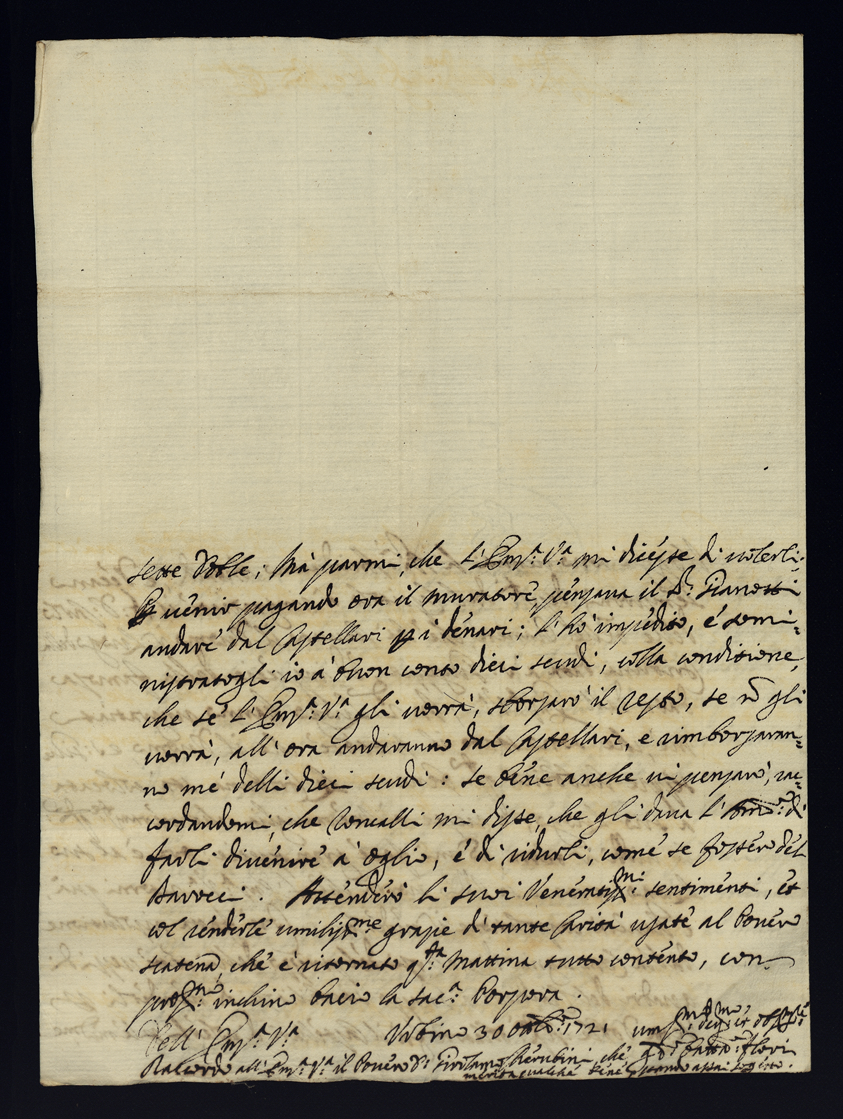 sette doble; Mà parmi, che L'Em.ª V.ª mi dicesse di volerli.
P venir pagando ora il muratore pensava il S.r Gianotti
andare dal Castellari p i denari; L'hò impedito, é somi=
nistratogli io à buon conto dieci scudi, colla condizione,
che se L'Em.ª V.ª gli vorrà, sborsarò il resto, se nõ gli
vorrà, all'ora andaranno dal Castellari, e rimborsaran=
no mé delli dieci scudi: se bene anche vi pensarò, rac=
cordandomi, che mi disse, che gli dava L' di
farli divenire à oglio, é di ridurli, come se fossero del
Barocci. Attenderò li suoi Veneratiss.mi sentimenti, et
col renderle umiliss.me grazie di tante Carità usate al Povero
scatena, che é ritornato q.sta Mattina tutto contento, con
profs.mo inchino bacio la sac.ª Porpora.
Dell'Em.ª V.ª Urbino 30 1721
Raccordo all'Em.ª V.ª il Povero S.r Girolamo Cherubini, che
merita qualche bene, essendo assai